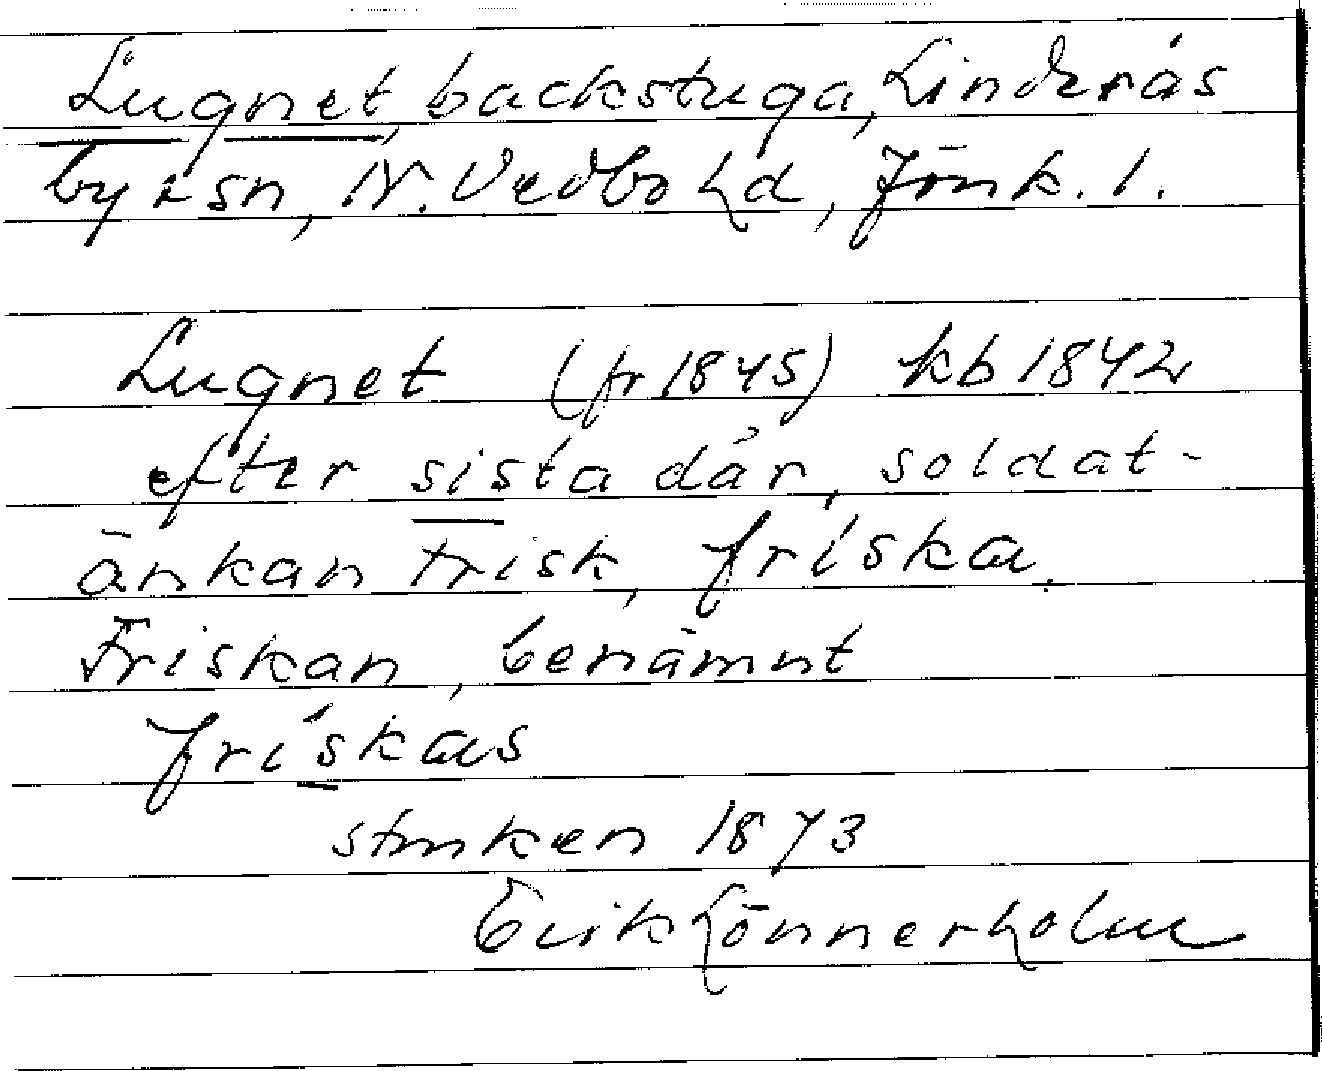 Lugnet, backstuga, Linderås
by i sn, N. Vedbo hd, Jönk. l.
Lugnet (fr 1845) kb 1842
efter sista där, soldat-
änkan Frisk, friska.
Friskan, benämnt
friskas
struken 1873
Erik Lönnerholm